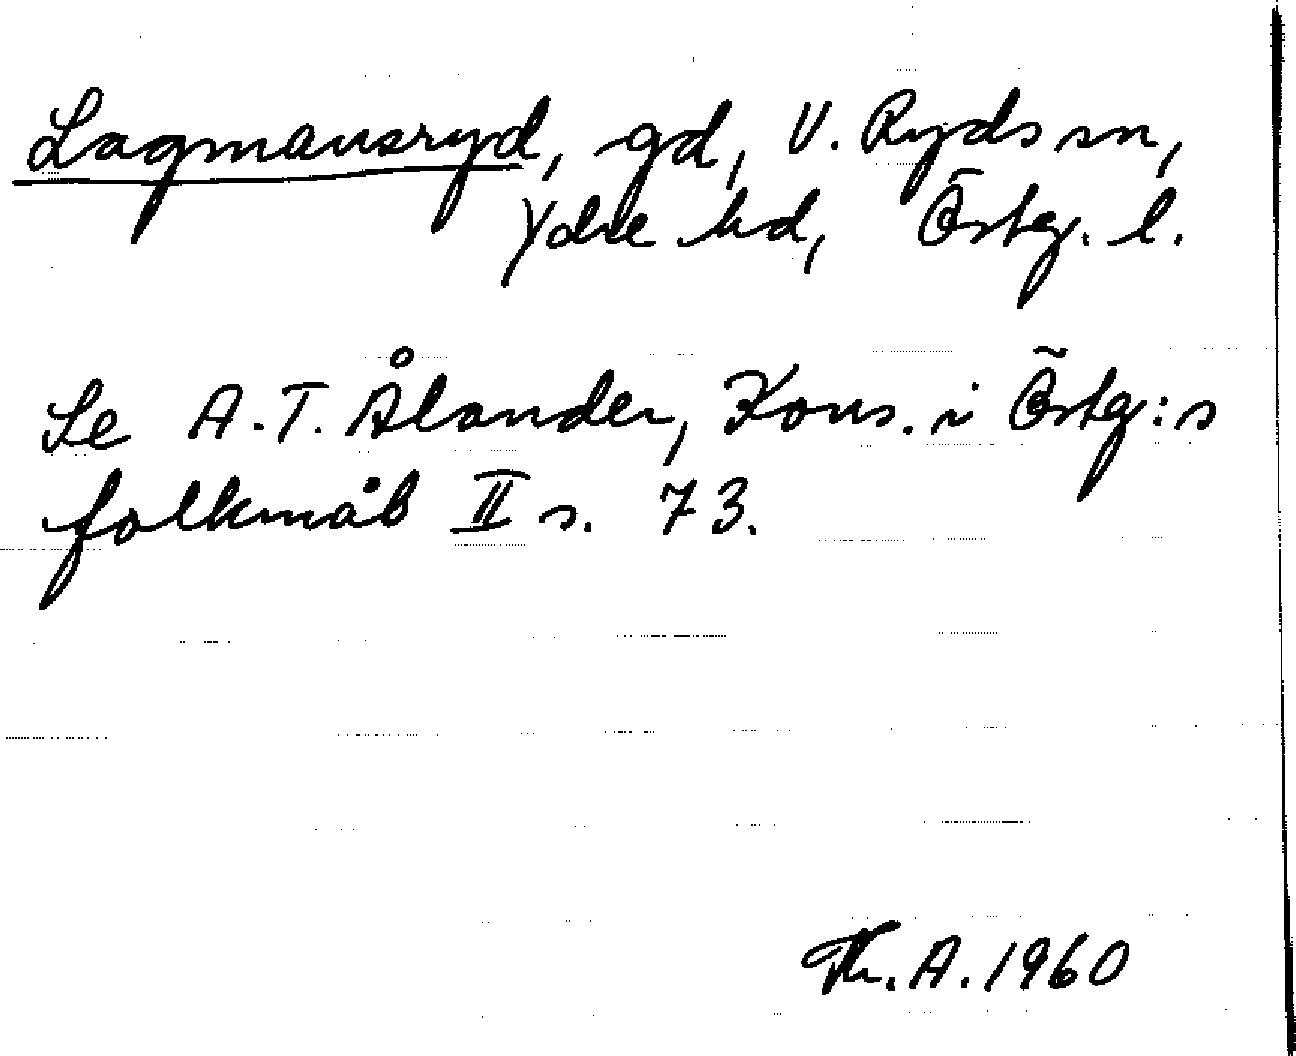 Lagmansryd, gd, V. Ryds sn,
Ydre hd, Östg. l.
Se A.T. Ålander, Kons. i Östg:s
folkmål II s. 73.
Th. A. 1960